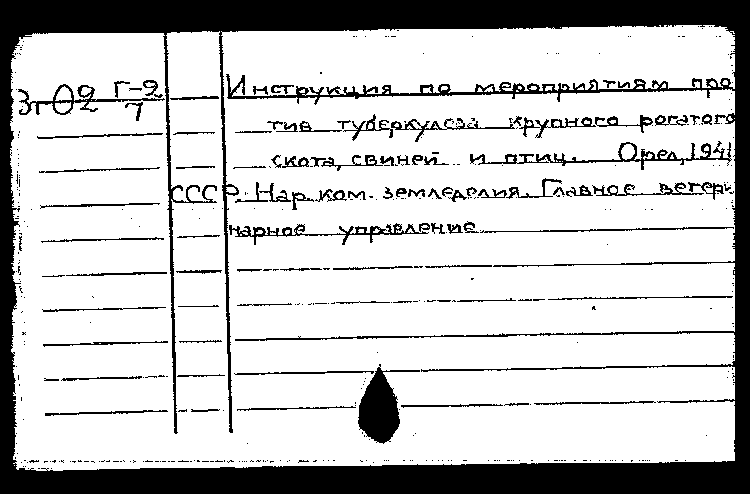 3г02 Г-2/7
Инструкция по мероприятиям про
тив туберкулеза крупного рогатого
скота, свиней и птиц. Орел, 1941
СССР. Нар. ком. земледелия. Главное ветери
нарное управление